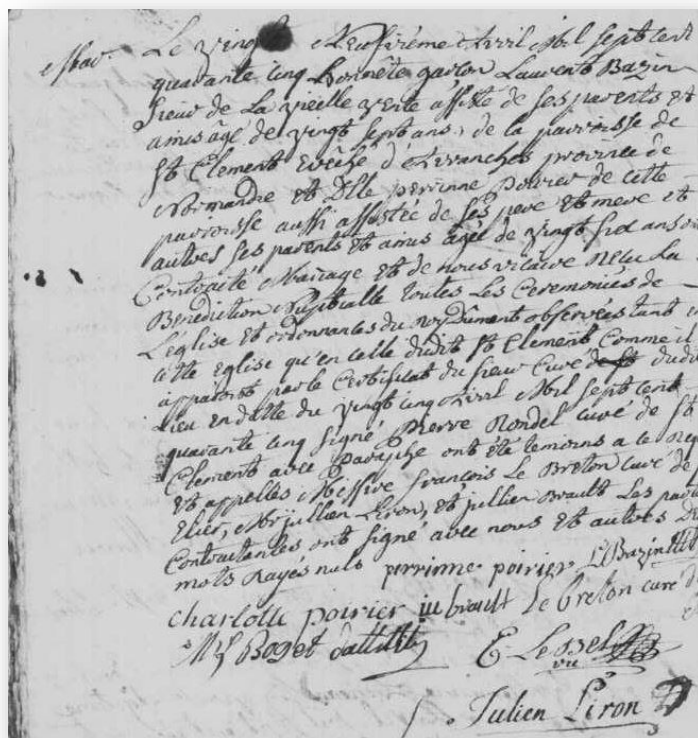 Mar. Le vingt Neufvième Avril Mil sept cent
quarante cinq honnête garçon Laurent Bazin
sieur de La vieille verte assisté de ses parents et
amis âgé de vingt sept ans, de la parroisse de
St Clement Evêché d'Avranches province de
Normandie et Dlle perrinne Poirier de cette
parroisse aussi assistée de ses pere et mere et
autres ses parents et amis agée de vingt six ans on
Contracté Mariage et de nous vicaire receu La
Benediction Nuptialle toutes Les Ceremonies de
L'église et ordonnances du roy Dument observées tant en
cette Eglise qu'en celle dudit St Clement Comme il
apparoist par le Certificat du sieur Curé dudi
Lieu en datte du vingt cinq Avril Mil sept cent
quarante cinq signé Pierre Rondel curé de St
Clement avec paraphe ont été temoins a ce req
Et appelles Messire François Le Breton curé de
Elier, Mr jullien Liron, et jullien Brault Les par
Contractantes ont signé avec nous et autres D
mots rayés nuls perrinne poirier L Bazin
charlotte poirier ju brault Le breton curé d
Boget
E Lesset
vic
Julien Liron